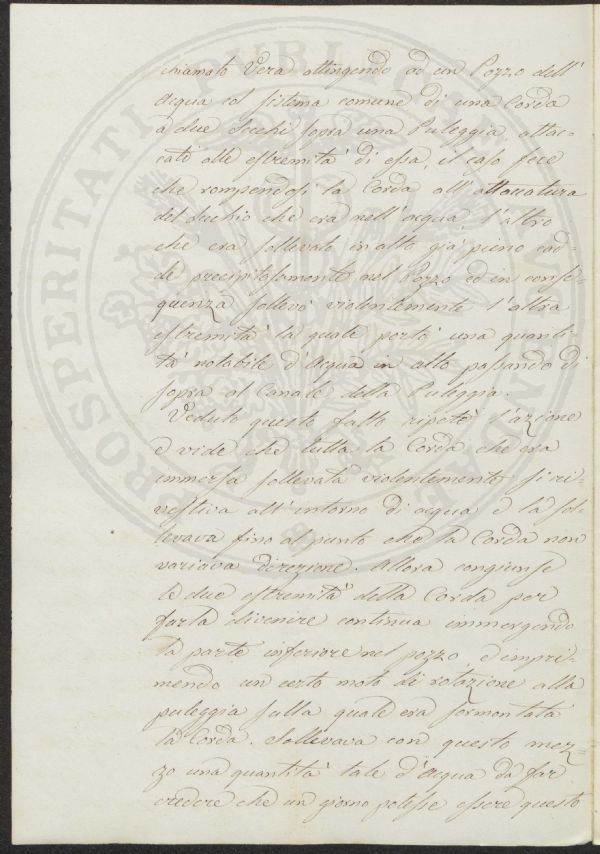 chiamato Vera attingendo ad un Pozzo dell'
Acqua col sistema comune di una Corda
a due Secchi sopra una Puleggia, attac=
cati alle estremità di essa, il caso fece
che rompendosi la Corda all'attaccatura
del Secchio che era nell'acqua, l'altro
che era sollevato in alto già pieno cad=
de precipitosamente nel Pozzo ed in conse=
guenza sollevò violentemente l'altra
estremità la quale portò una quanti=
tà notabile d'Acqua in alto passando di
sopra al Canale della Puleggia.
Veduto questo fatto ripetè l'azione
e vide che tutta la Corda che era
immersa sollevata violentemente si ri=
vestiva all'intorno di acqua e la sol=
levava fino al punto che la Corda non
variava direzione. Allora congiunse
le due estremità della Corda per
farla divenire continua immergendo
la parte inferiore nel pozzo, ed impri=
mendo un certo moto di rotazione alla
puleggia sulla quale era sormontata
la Corda. Sollevava con questo mez=
zo una quantità tale d'Acqua da far
credere che un giorno potesse essere questo
PROSPERITATI PUBLICAE